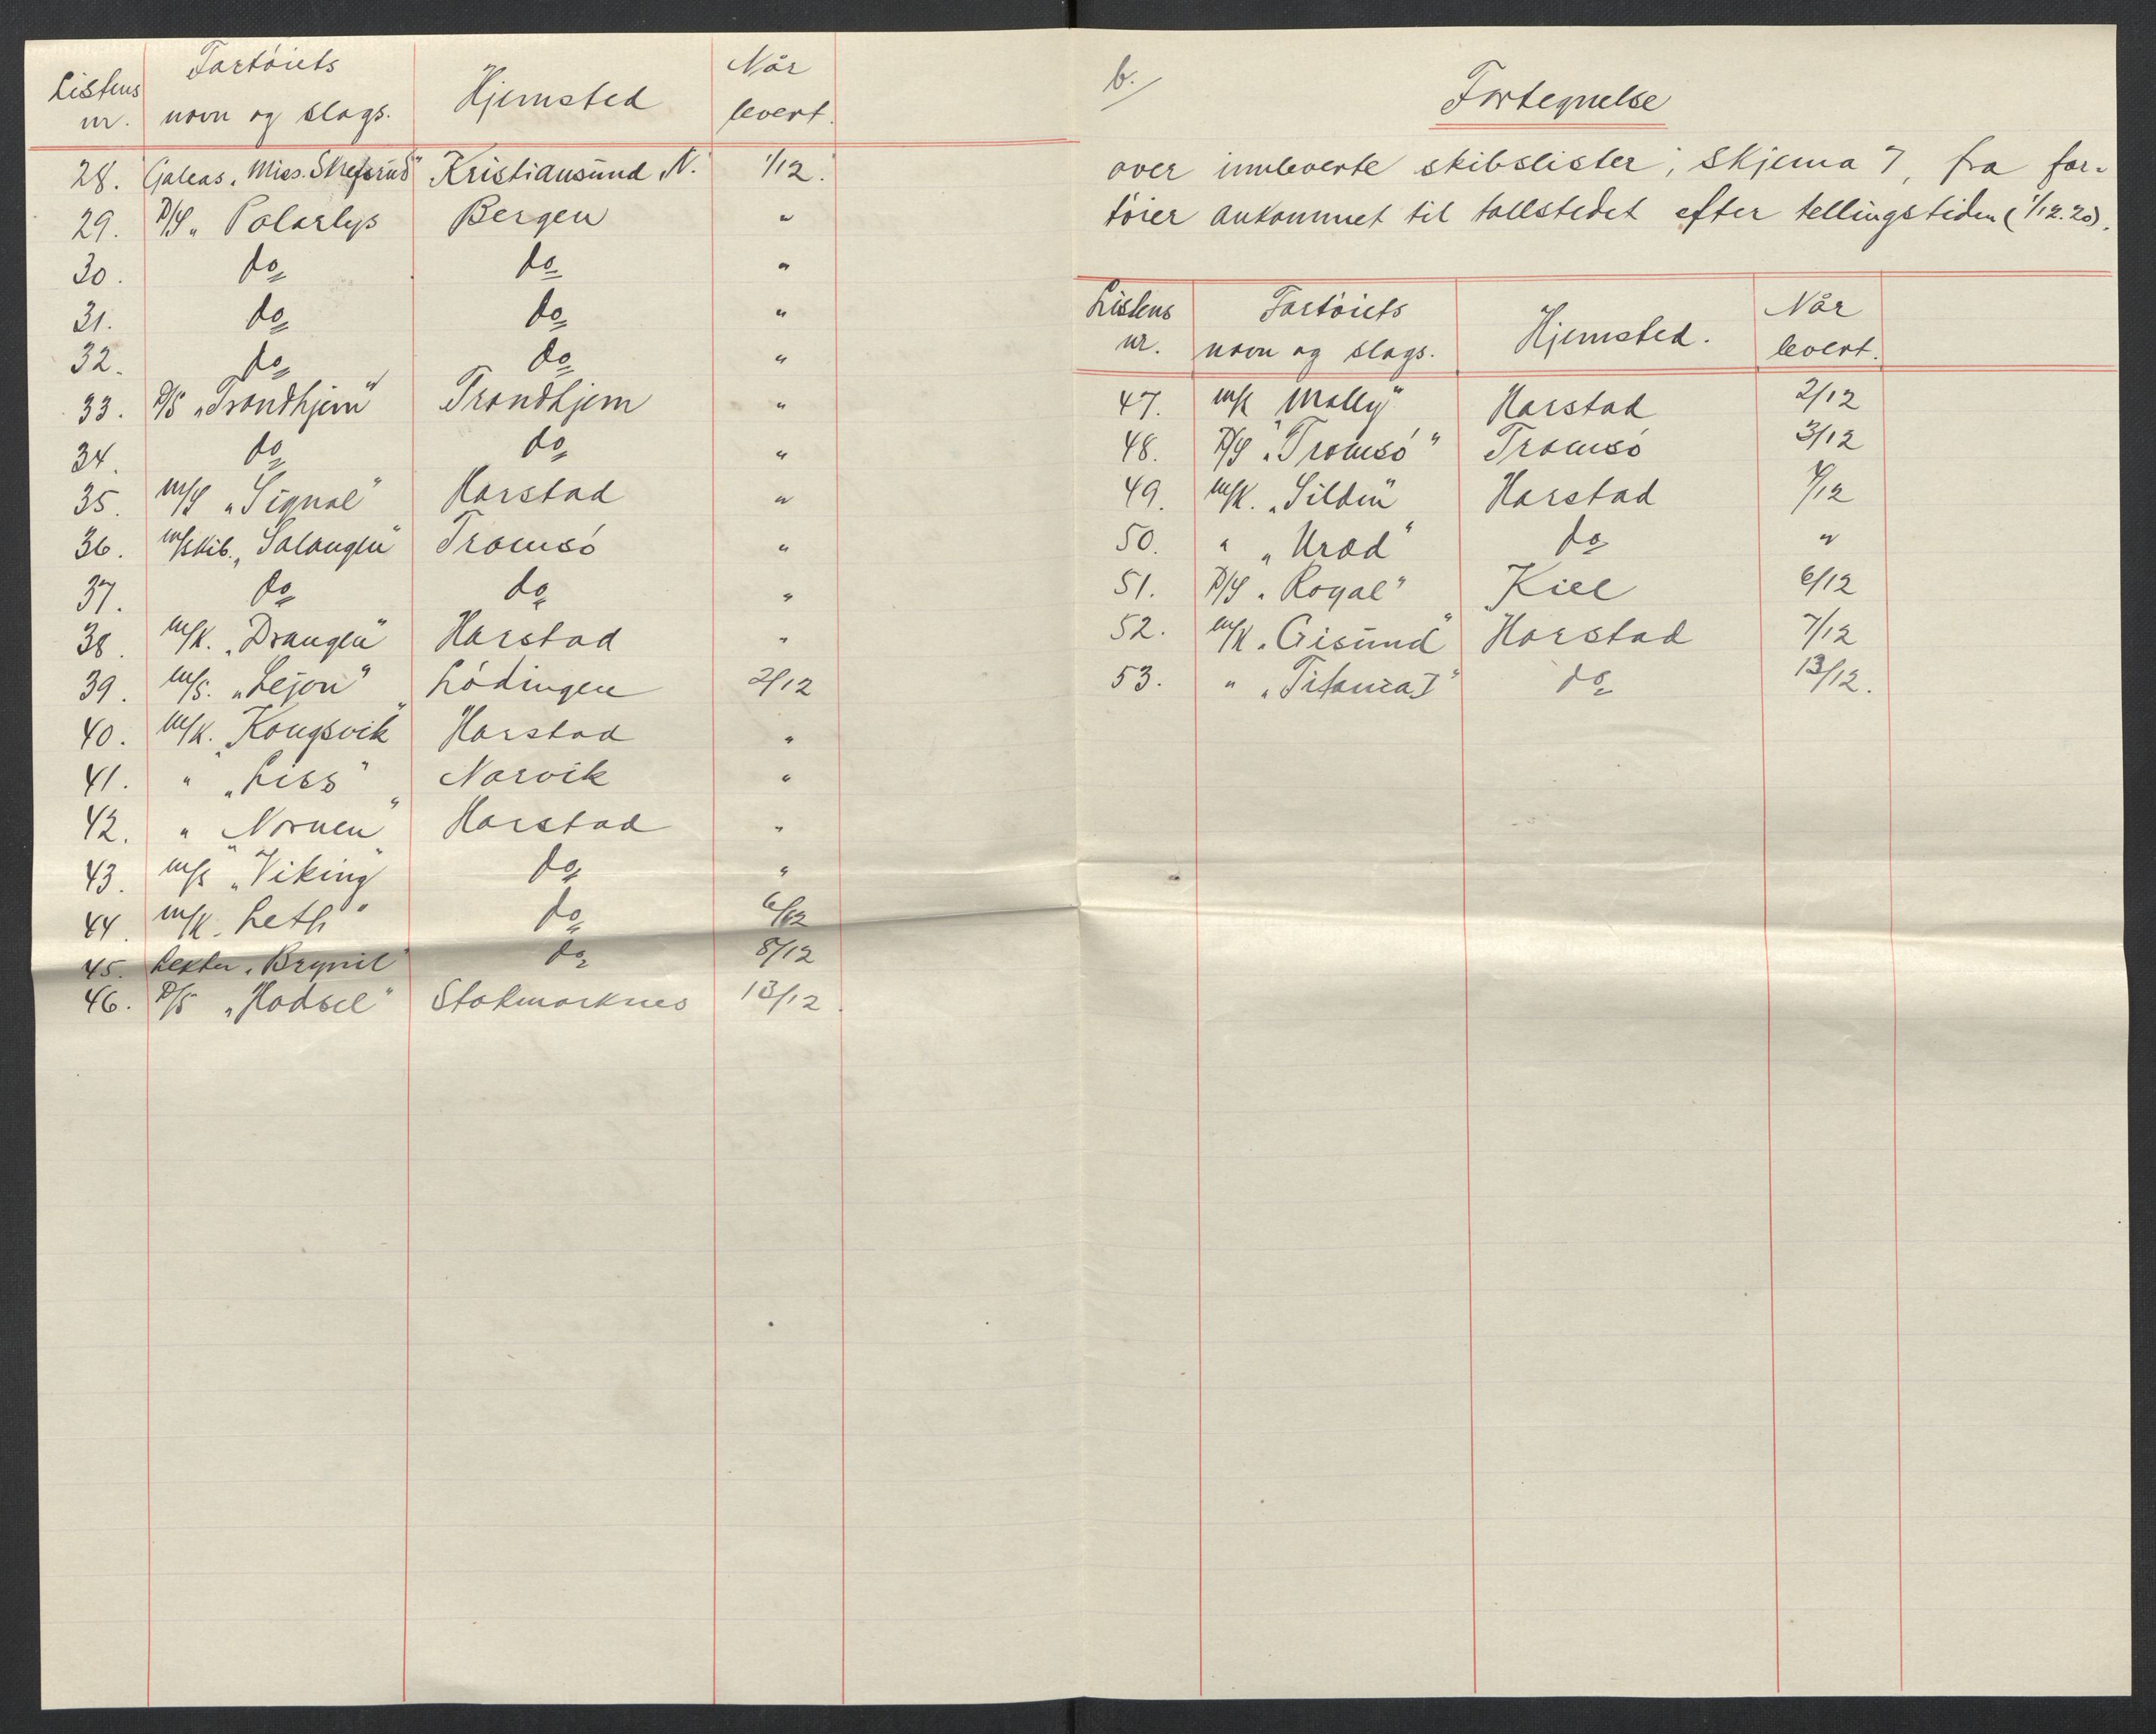 Listens nr. | Fartöiets navn og slags. | Hjemsted | Når levert.
28. Galeas „Miss. Skrefsrud" Kristiansund N. 1/12.
29. D/S „Polarlys Bergen "
30. do do "
31. do do "
32. do do "
33. D/S „Trondhjem" Trondhjem "
34. do do "
35. m/S „Signal" Harstad "
36. m/skib. „Salangen" Tromsö "
37. do do "
38. m/k. „Drangen" Harstad "
39. m/s. „Lejon" Lödingen 2/12
40. m/k. „Kongsvik" Harstad "
41. " „Liss" Narvik "
42. " „Nornen" Harstad "
43. m/s „Viking" do "
44. m/k. „Leth" do 6/12
45. Lekter „Brynil" do 8/12
46. D/S „Hadsel" Stokmarknes 13/12.
b./
Fortegnelse
over innleverte skibslister, skjema 7, fra far-
töier ankommet til tollstedet efter tellingstiden (1/12.20).
Listens nr. | Fartöiets navn og slags. | Hjemsted. | Når levert.
47. m/k „Molly" Harstad 2/12
48. D/S „Tromsö" Tromsö 3/12
49. m/k. „Silden" Harstad 4/12
50. " „Uræd" do "
51. D/S „Royal" Kiel 6/12
52. m/k „Gisund" Harstad 7/12
53. " „Titania I" do 13/12.